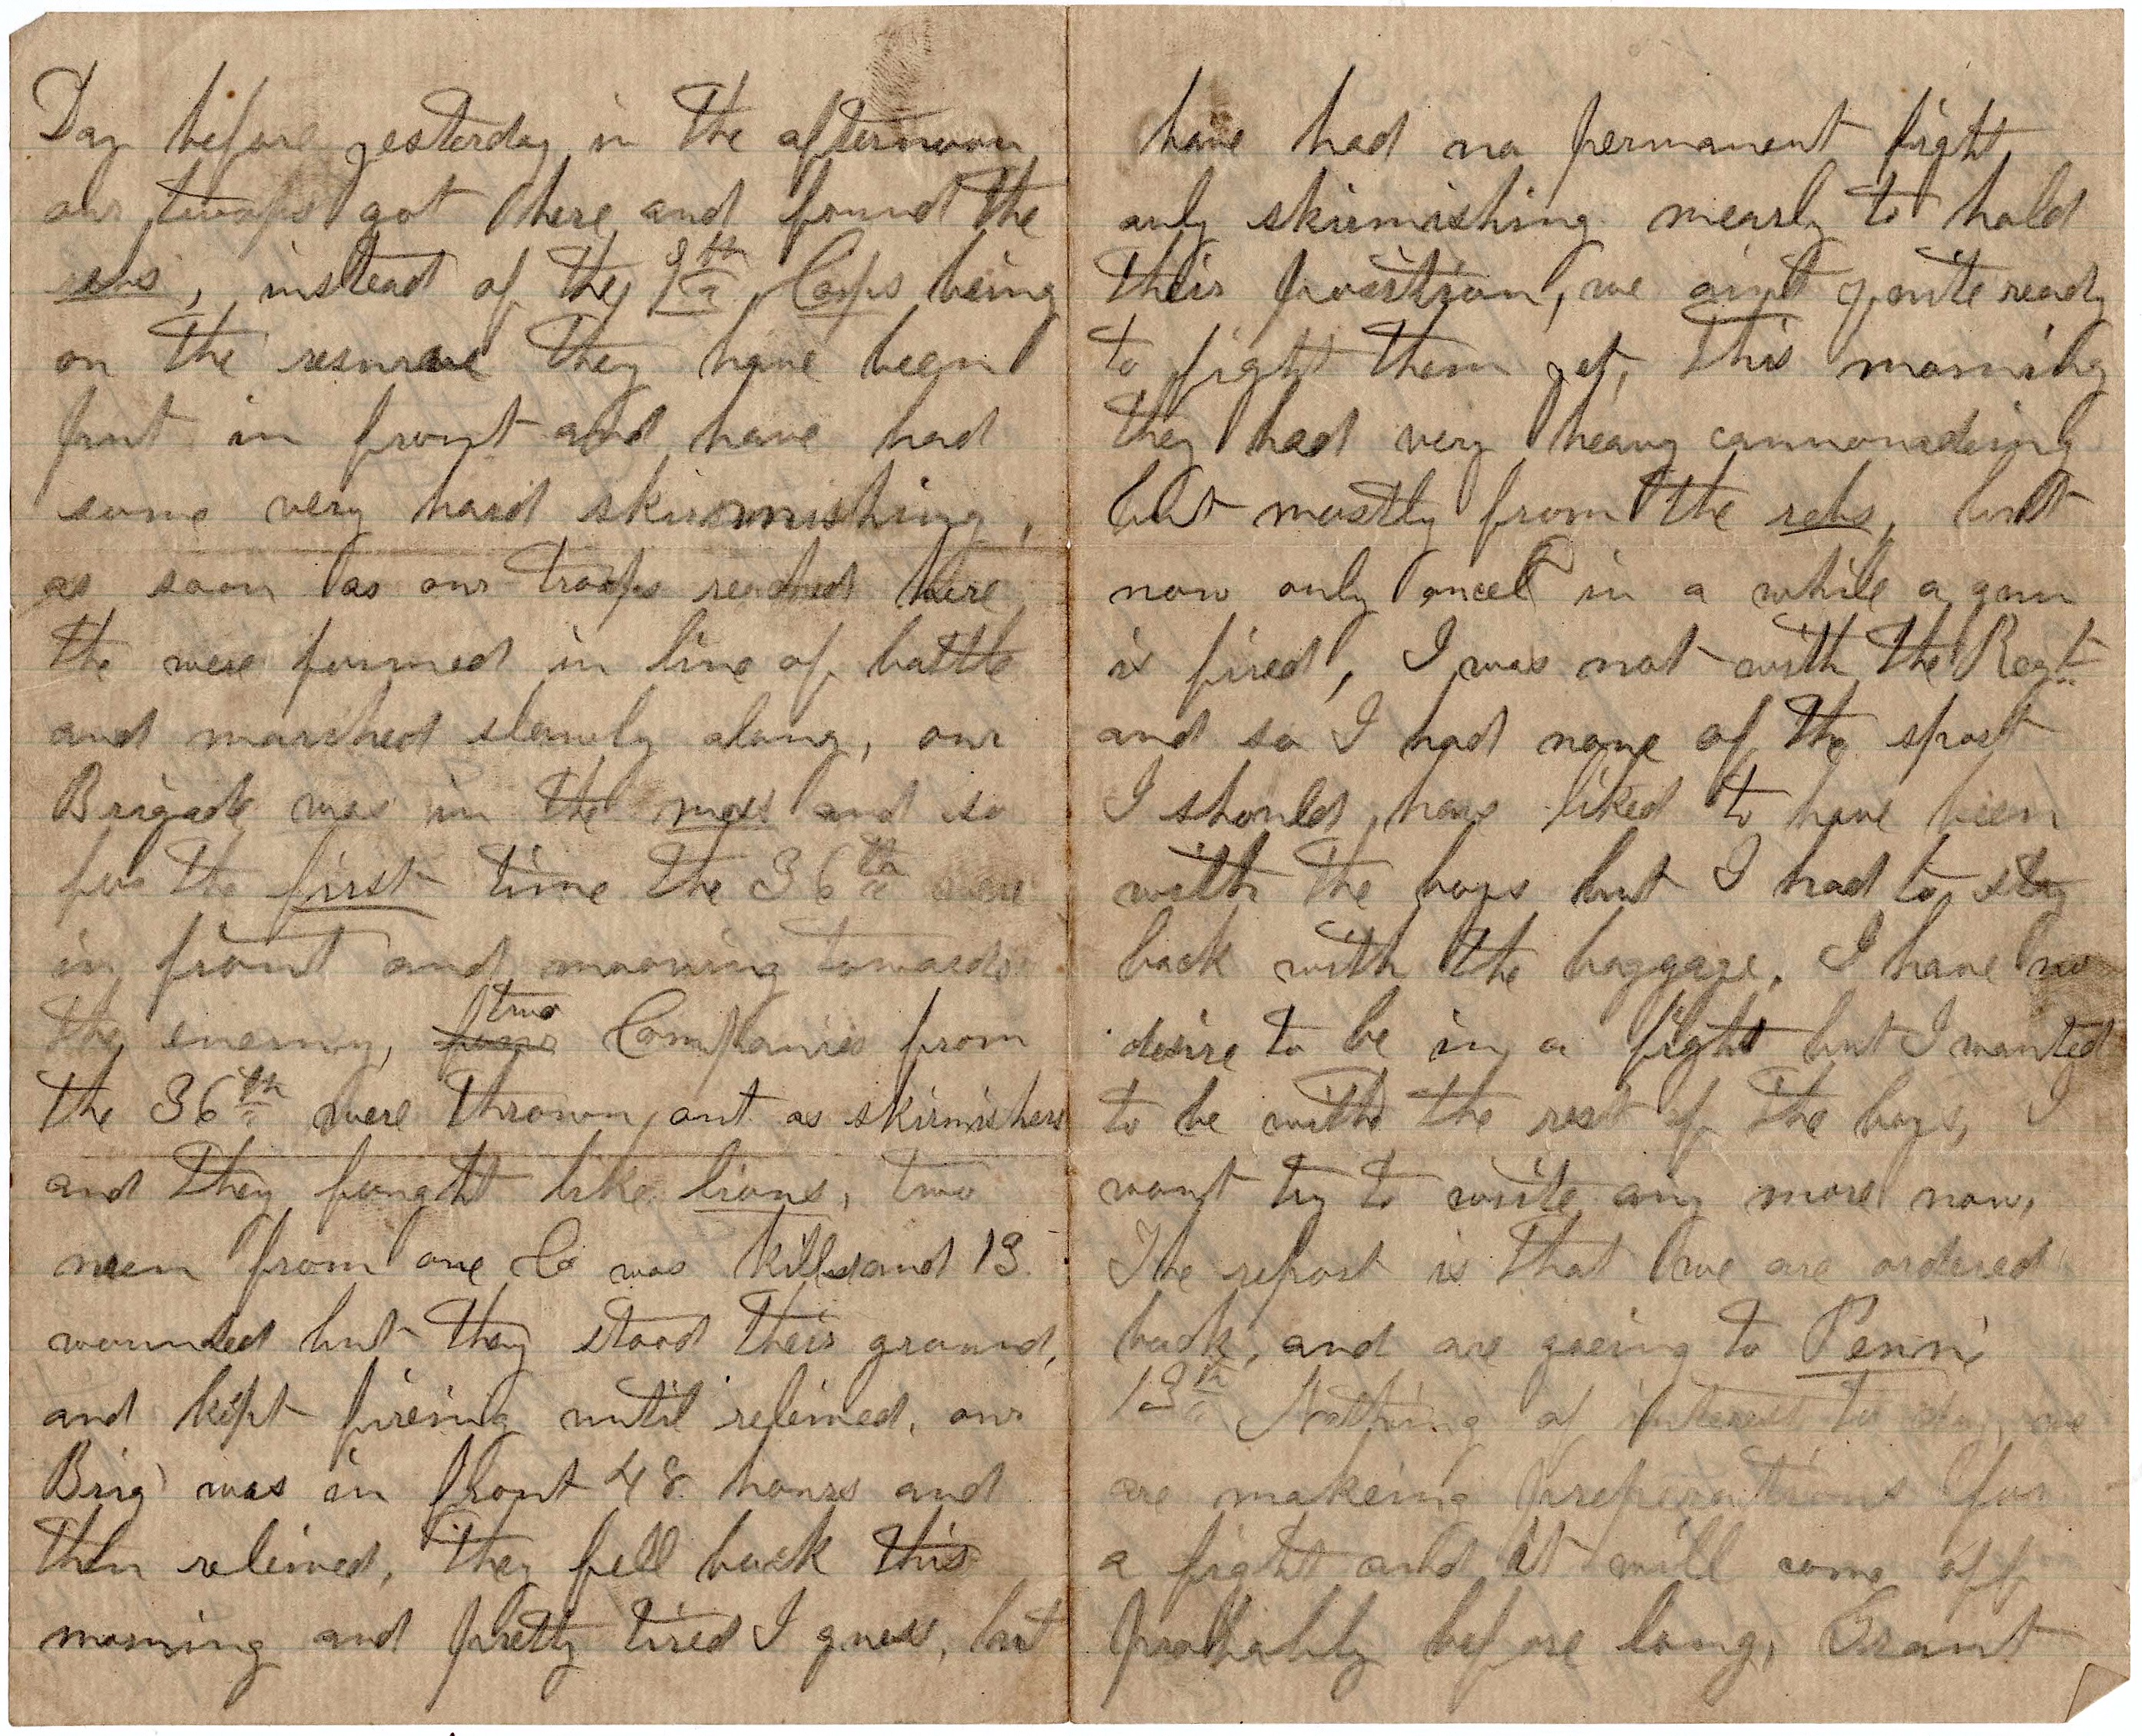 Day before yesterday in the afternoon
our troops got there and found the
rebs, instead of they 9th Corps being
on the resurve they have been
put in front and have had
some very hard skirmishing,
as soon as our troops reached here,
the were formed in line of battle
and marched slowly along, our
Brigade was in the mess and so
for the first time the 36th were
in front and mooving towards
the enemy, two Companies from
the 36th were thrown out as skirmishers
and they fought like lions, two
men from one Co was killed and 13
wounded but they stood their ground,
and kept fireing until releived, our
Brig was in front 48 hours and
then releived, they fell back this
morning and pretty tired I guess, but
have had no permanent fight
only skirmishing mearly to hold
their position, we aint quite ready
to fight them yet, this morning
they had very heavy cannonading
but mostly from the rebs, but
now only oncet in a while a gun
is fired, I was not with the Regt
and so I had none of the sport
I should have liked to have been
with the boys but I had to stay
back with the baggage. I have no
desire to be in a fight but I wanted
to be with the rest of the boys, I
wont try to write any more now,
The report is that we are ordered
back, and are goeing to Penn'
13th Nothing of interest to day, we
are makeing preperations for
a fight and it will come off
probably before long, Grant